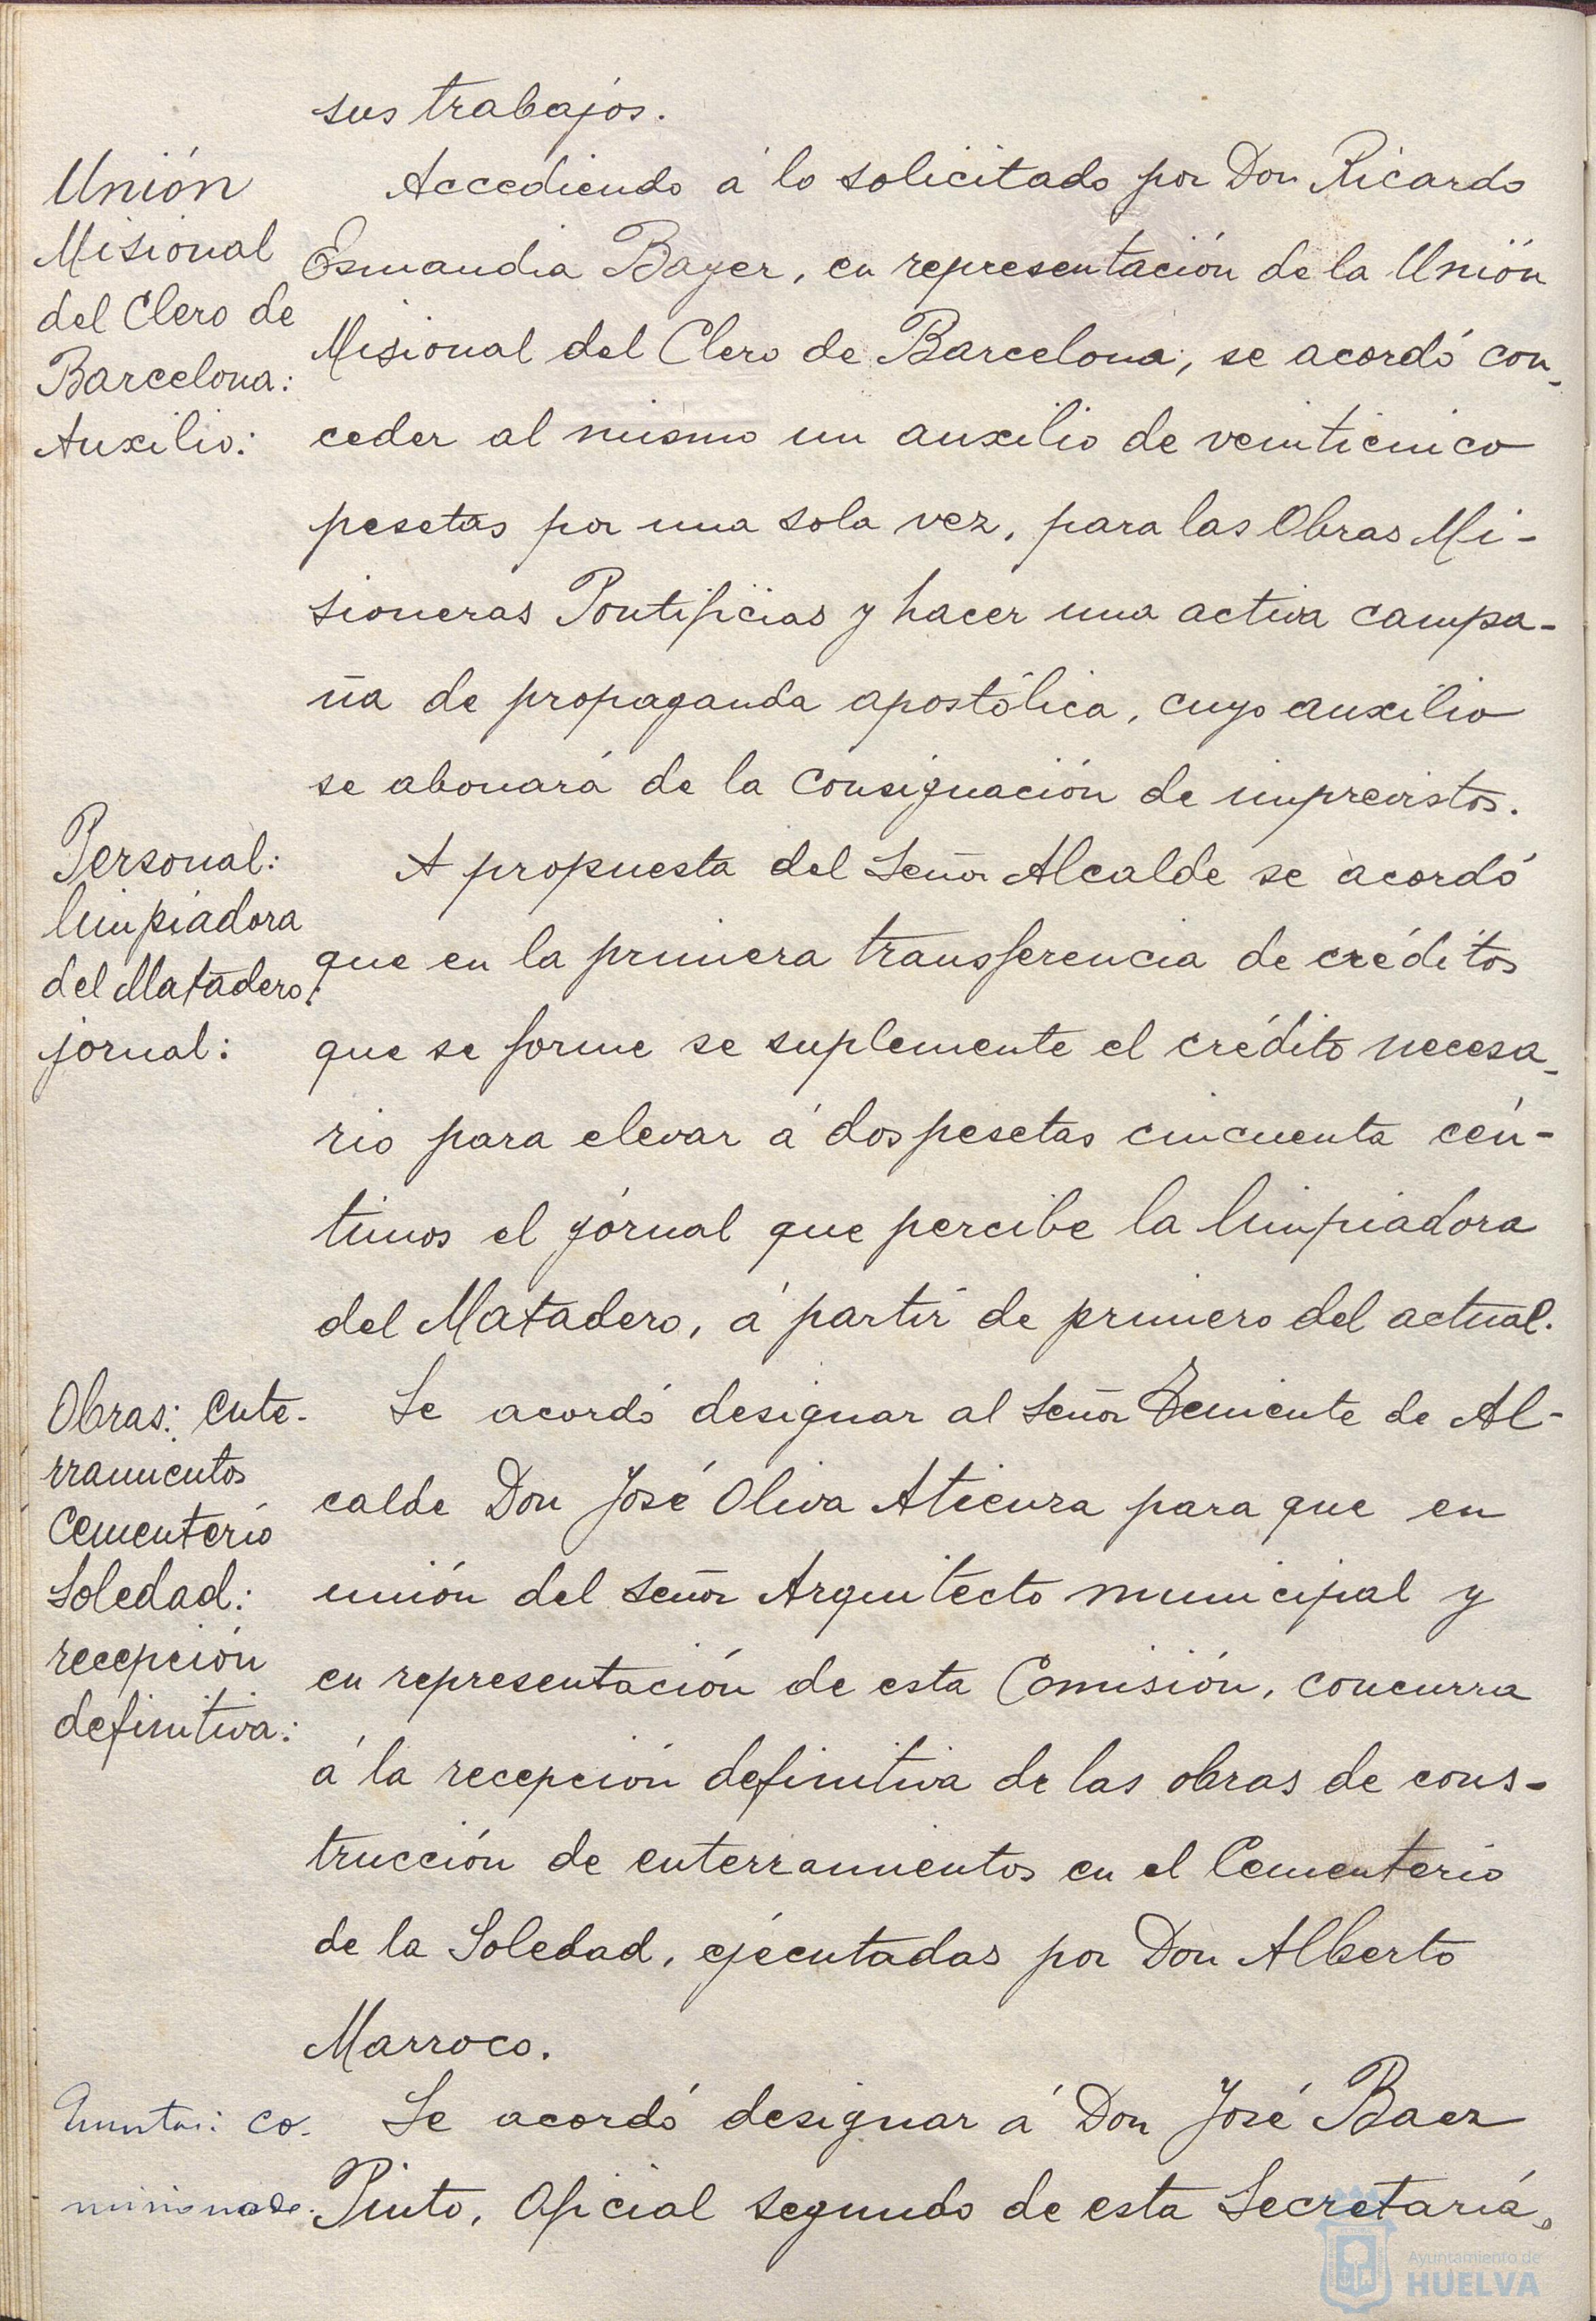 sus trabajos.
Unión
Misional
del Clero de
Barcelona:
Auxilio:
Accediendo á lo solicitado por Don Ricardo
Esmandia Bayer, en representación de la Unión
Misional del Clero de Barcelona, se acordó con-
ceder al mismo un auxilio de veinticinco
pesetas por una sola vez, para las Obras Mi-
sioneras Pontificias y hacer una activa campa-
ña de propaganda apostólica, cuyo auxilio
se abonará de la consignación de imprevistos.
Personal:
limpiadora
del Matadero:
jornal:
A propuesta del Señor Alcalde se acordó
que en la primera transferencia de créditos
que se forme se suplemente el crédito necesa-
rio para elevar á dos pesetas cincuenta cén-
timos el jornal que percibe la limpiadora
del Matadero, á partir de primero del actual.
Obras: ente-
rramientos
Cementerio
Soledad:
recepción
definitiva:
Se acordó designar al señor Teniente de Al-
calde Don José Oliva Atienza para que en
unión del señor Arquitecto municipal y
en representación de esta Comisión, concurra
á la recepción definitiva de las obras de cons-
trucción de enterramientos en el Cementerio
de la Soledad, ejecutadas por Don Alberto
Marroco.
Quintas: co-
misionado:
Se acordó designar á Don José Baez
Pinto, Oficial segundo de esta Secretaría,
Ayuntamiento de
HUELVA